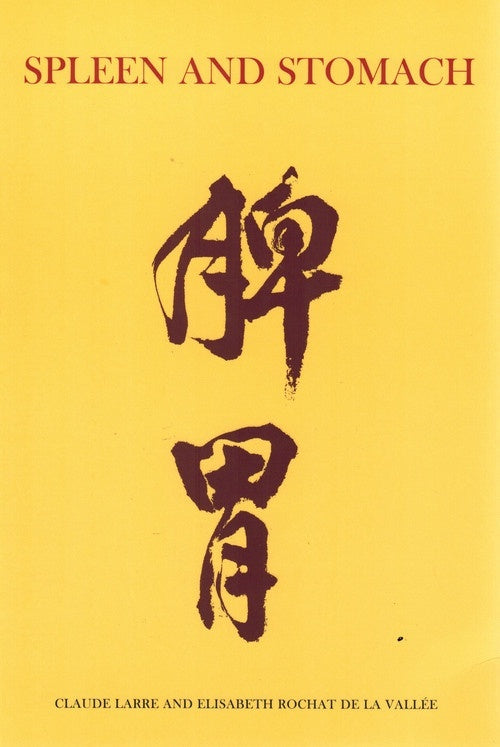 SPLEEN AND STOMACH
脾
胃
CLAUDE LARRE AND ELISABETH ROCHAT DE LA VALLÉE